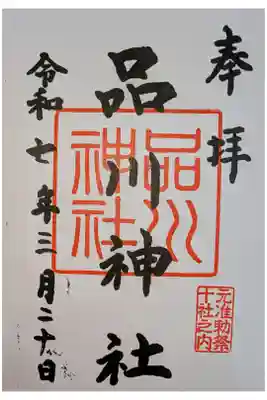 奉拝
品川神社
品川神社
元准勅祭
十社之内
令和七年三月二十日